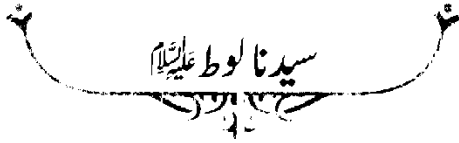 سیدنا لوط علیہ السلام